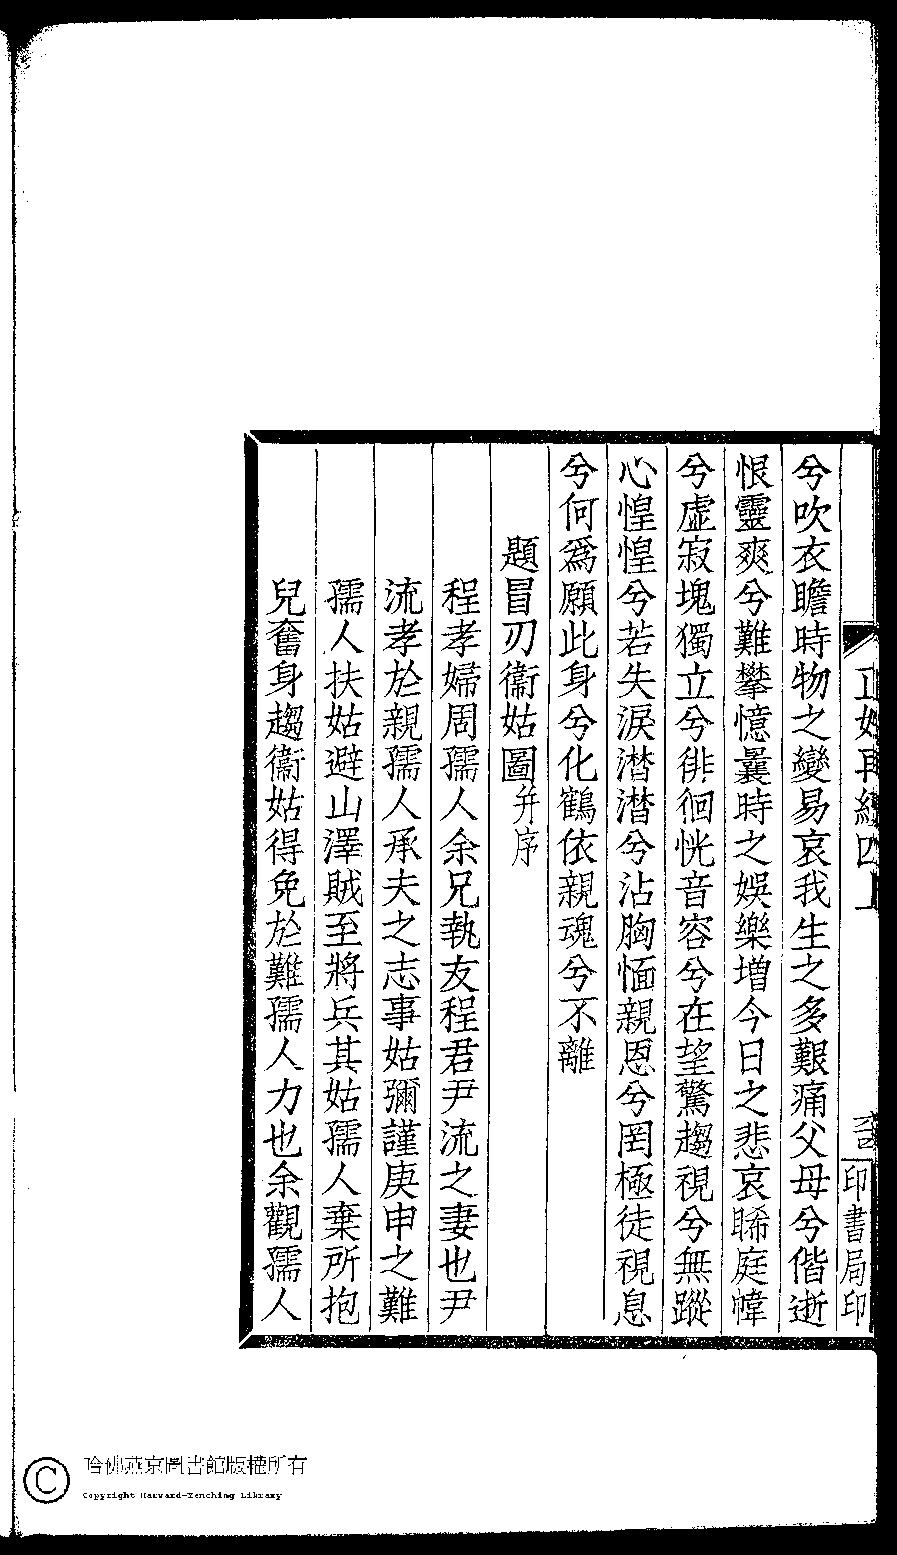 正始再續四上
印書局印
兮吹衣瞻時物之變易哀我生之多艱痛父母兮偕逝
恨靈爽兮難攀憶曩時之娛樂增今日之悲哀睎庭幃
兮虛寂塊獨立兮徘徊恍音容兮在望驚趨視兮無蹤
心惶惶兮若失淚潸潸兮沾胸愐親恩兮罔極徒視息
兮何爲願此身兮化鶴依親魂兮不離
題冒刃衞姑圖并序
程孝婦周孺人余兄執友程君尹流之妻也尹
流孝於親孺人承夫之志事姑彌謹庚申之難
孺人扶姑避山澤賊至將兵其姑孺人棄所抱
兒奮身趨衞姑得免於難孺人力也余觀孺人
哈佛燕京圖書館版權所有
Copyright Harvard-Yenching Library